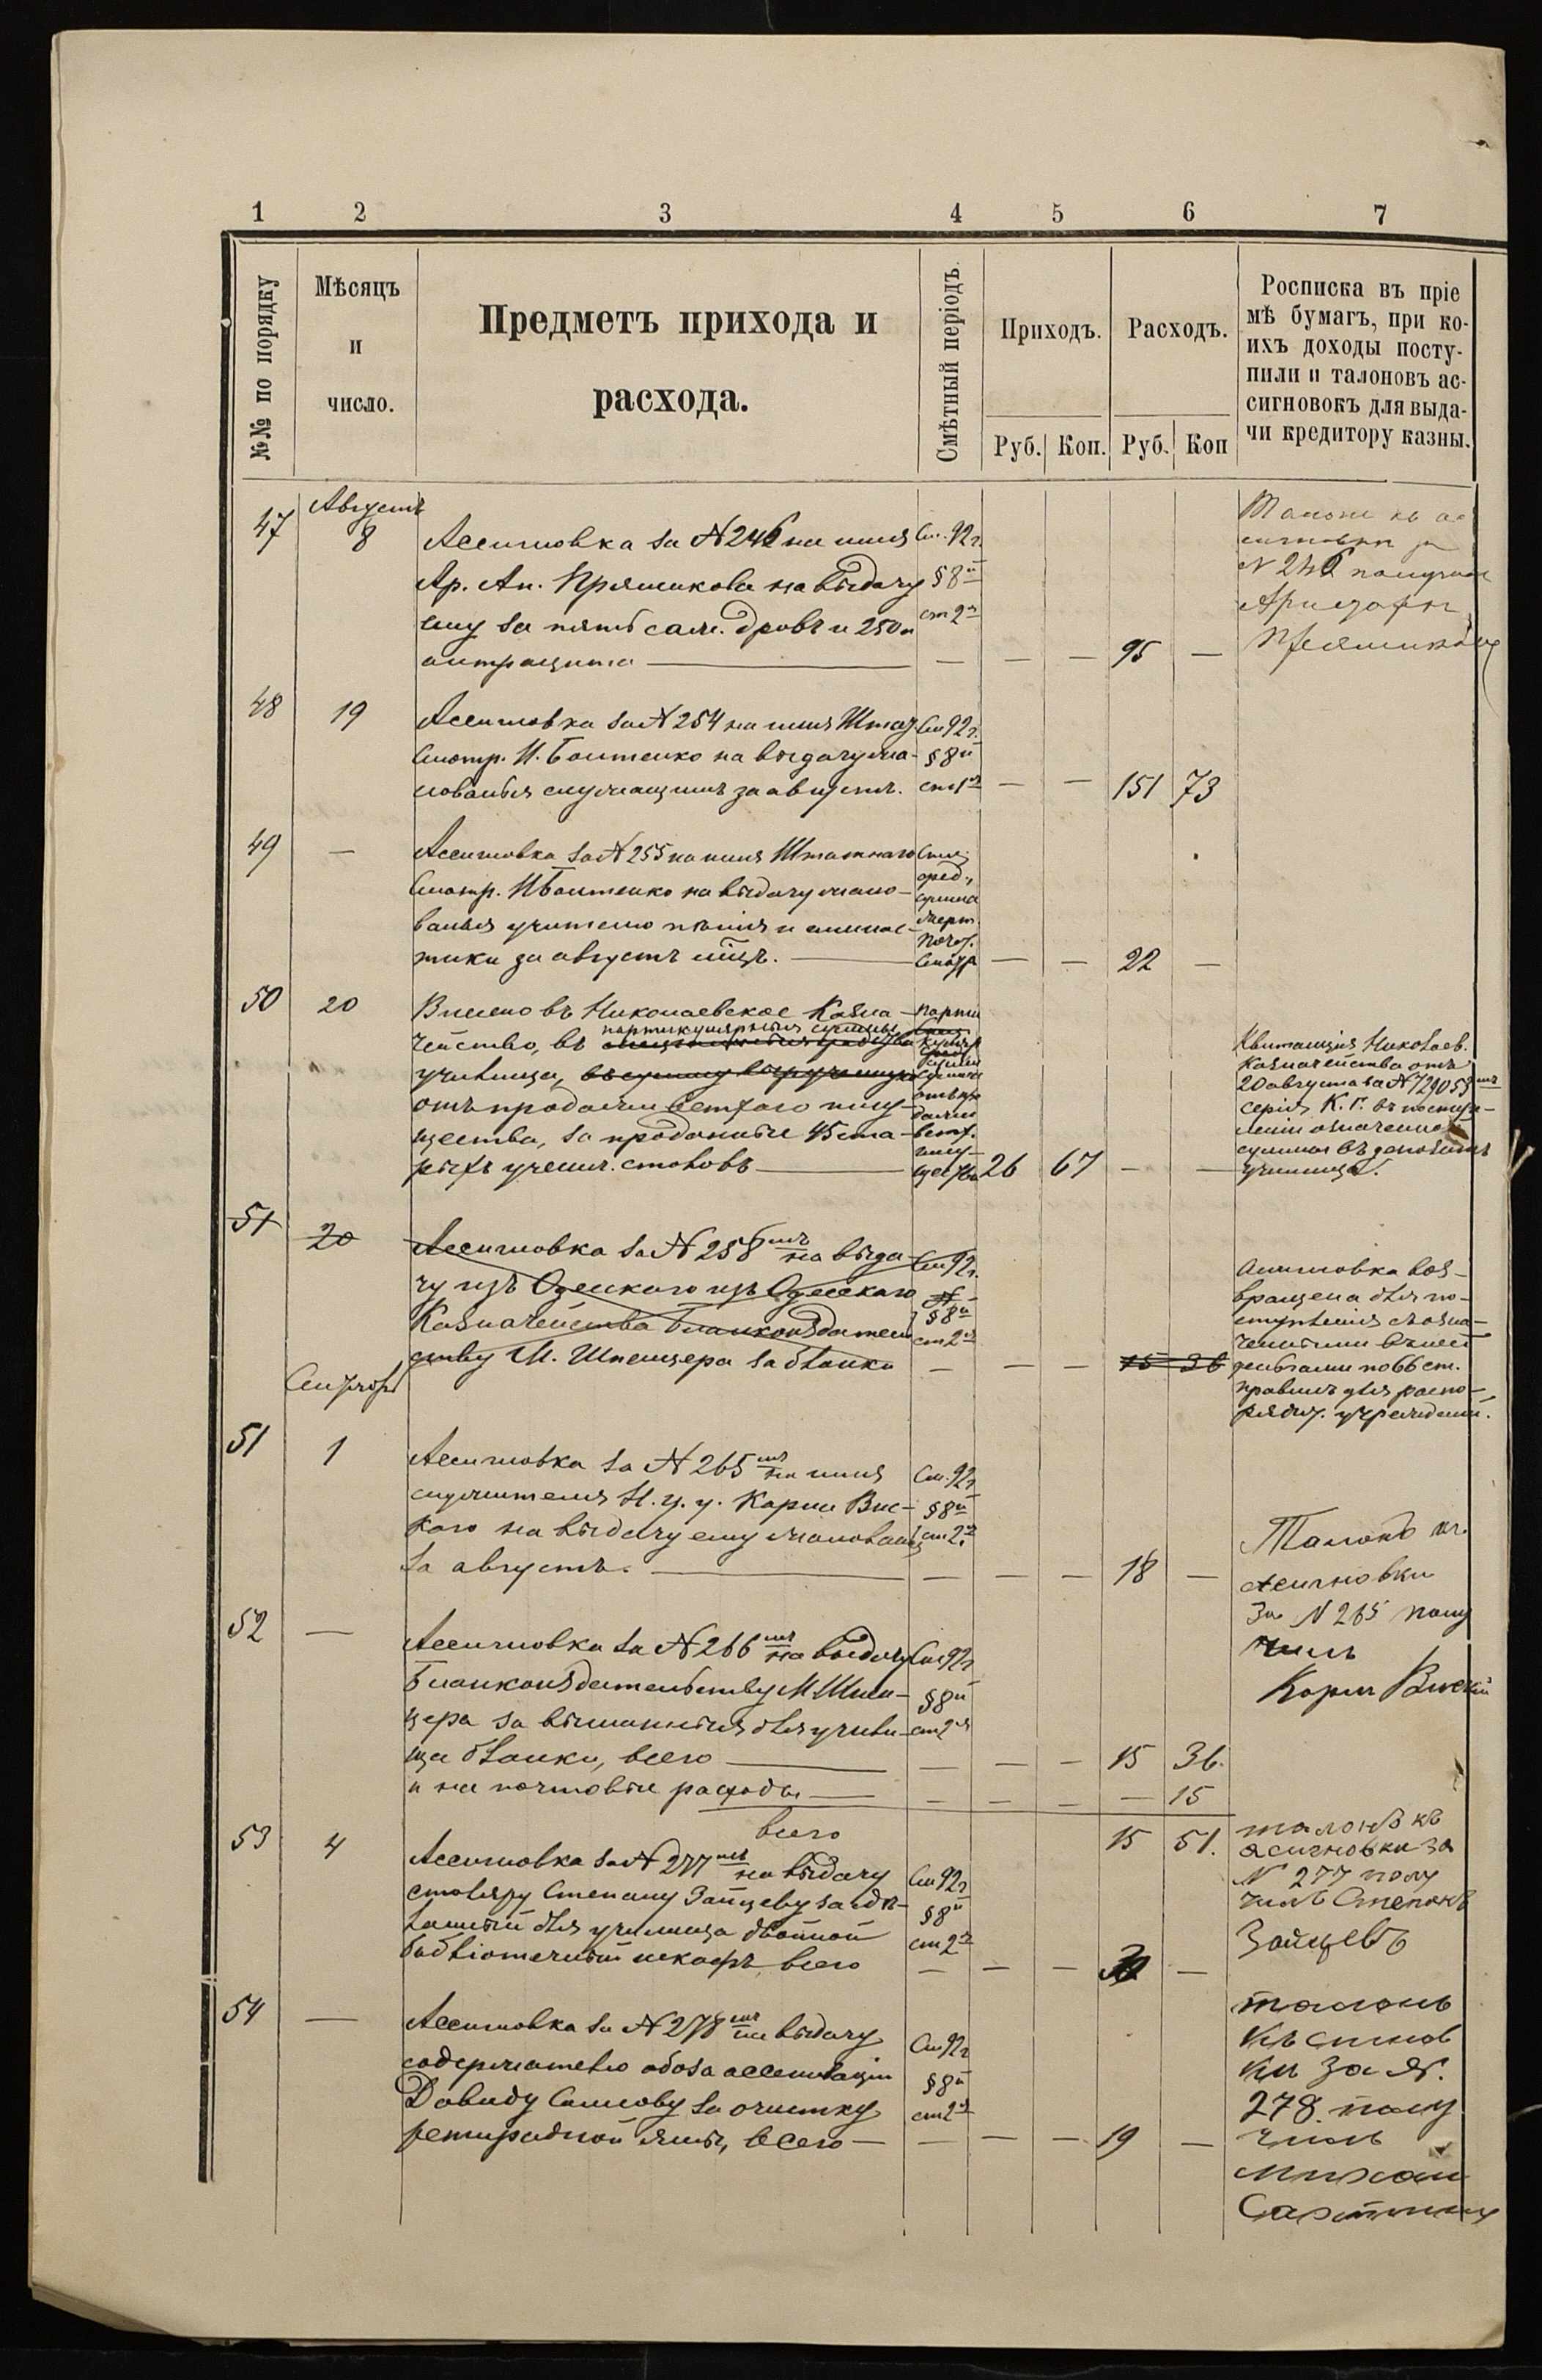 1 2 3 4 5 6 7
№№ по порядку
Мѣсяцъ
и
число.
Предметъ прихода и
расхода.
Смѣтный періодъ.
Приходъ.
Руб. Коп.
Расходъ.
Руб. Коп
Росписка въ пріе
мѣ бумагъ, при ко-
ихъ доходы посту-
пили и талоновъ ас-
сигновокъ для выда-
чи кредитору казны.
47 Августъ 8
Ассигновка за № 246 на имя
Ар. Ан. Пряшникова на выдачу
ему за пять саж. дровъ и 250 п
антрацита — — — 95 —
См. 92 г.
§ 8й
ст 2я
№ 246 получилъ
48 19
Ассигновка за № 254 на имя Штат
Смотр. И. Баштенко на выдачу жа-
лованья служащимъ за августъ. — — 151 73
См 92 г.
§ 8й
ст 1я
49 —
Ассигновка за № 255 на имя Штатнаго
Смотр. И Баштенко на выдачу жало-
ванья учителю пѣнія и гимнас-
тики за августъ мѣц. — — — 22 —
Спец.
сред.,
сумма
пожерт.
Почет.
Смотр
50 20
Внесено въ Николаевское Казна-
чейство, въ партикулярныя суммы
училища,
отъ продажи ветхаго иму-
щества, за проданные 45 ста-
рыхъ ученич. столовъ — 26 67 — —
отъ про
дажи
ветх.
иму-
щества
Квитанція Николаев.
Казначейства отъ
20 августа за № 729053мъ
серія К. Г. въ поступ-
леніи означенной
суммы въ депозитъ
училища.
51 20
Ассигновка за № 258мъ на выда-
чу изъ Одесскаго изъ Одесскаго
Казначейства Бланкоиздатель
ству М. Шпенцера за бланки — — — 15 36
См 92 г.
§ 8й
ст 2я
Ассигновка воз-
вращена для по-
ступленія съ озна-
ченными въ ней
деньгами по 66 ст.
правилъ для распо-
рядит. учрежденій.
Сентябрь
51 1
Ассигновка за № 265мъ на имя
служителя Н. у. у. Карпа Вис-
каго на выдачу ему жалованья
за августъ. — — — — 18 —
См. 92 г
§ 8й
ст 2я
Талонъ къ
Асигновки
За № 265 полу
чилъ
Карпъ Виский
52 —
Ассигновка за № 266мъ на выдачу
Бланкоиздательству М Шпен-
цера за выписанныя для учили-
ща бланки, всего — — — — 15 36.
и на почтовые расходы — — — — — 15
всего 15 51.
См 92 г
§ 8й
ст 2я
53 4
Ассигновка за № 277мъ на выдачу
столяру Степану Зайцеву за сдѣ-
ланный для училища двойной
библіотечный шкафъ всего — — — 30 —
См 92 г
§ 8й
ст 2я
талонъ къ
асигновки за
№ 277 полу
чилъ Степанъ
Зайцевъ
54 —
Ассигновка за № 278мъ на выдачу
содержателю обоза ассенизаціи
Давиду Сашову за очистку
ретирадной ямы, всего — — — — 19 —
См 92 г
§ 8й
ст 2я
талонъ
къ сигнов
ки за №.
278 полу
чилъ